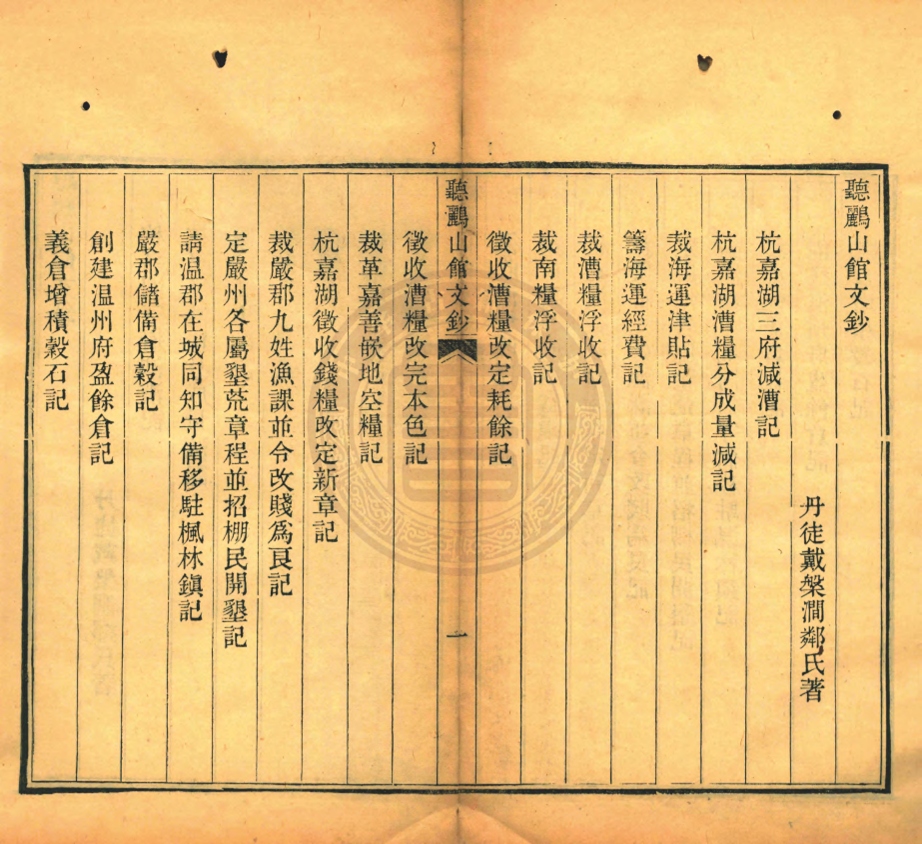 聽鸝山館文鈔
丹徒戴槃澗鄰氏著
杭嘉湖三府減漕記
杭嘉湖漕糧分成量減記
裁海運津貼記
籌海運經費記
裁漕糧浮收記
裁南糧浮收記
徵收漕糧改定耗餘記
聽鸝山館文鈔
一
徵收漕糧改完本色記
裁革嘉善嵌地空糧記
杭嘉湖徵收錢糧改定新章記
裁嚴郡九姓漁課並令改賤爲良記
定嚴州各屬墾荒章程並招棚民開墾記
請温郡在城同知守備移駐楓林鎭記
嚴郡儲備倉穀記
創建温州府盈餘倉記
義倉增積穀石記